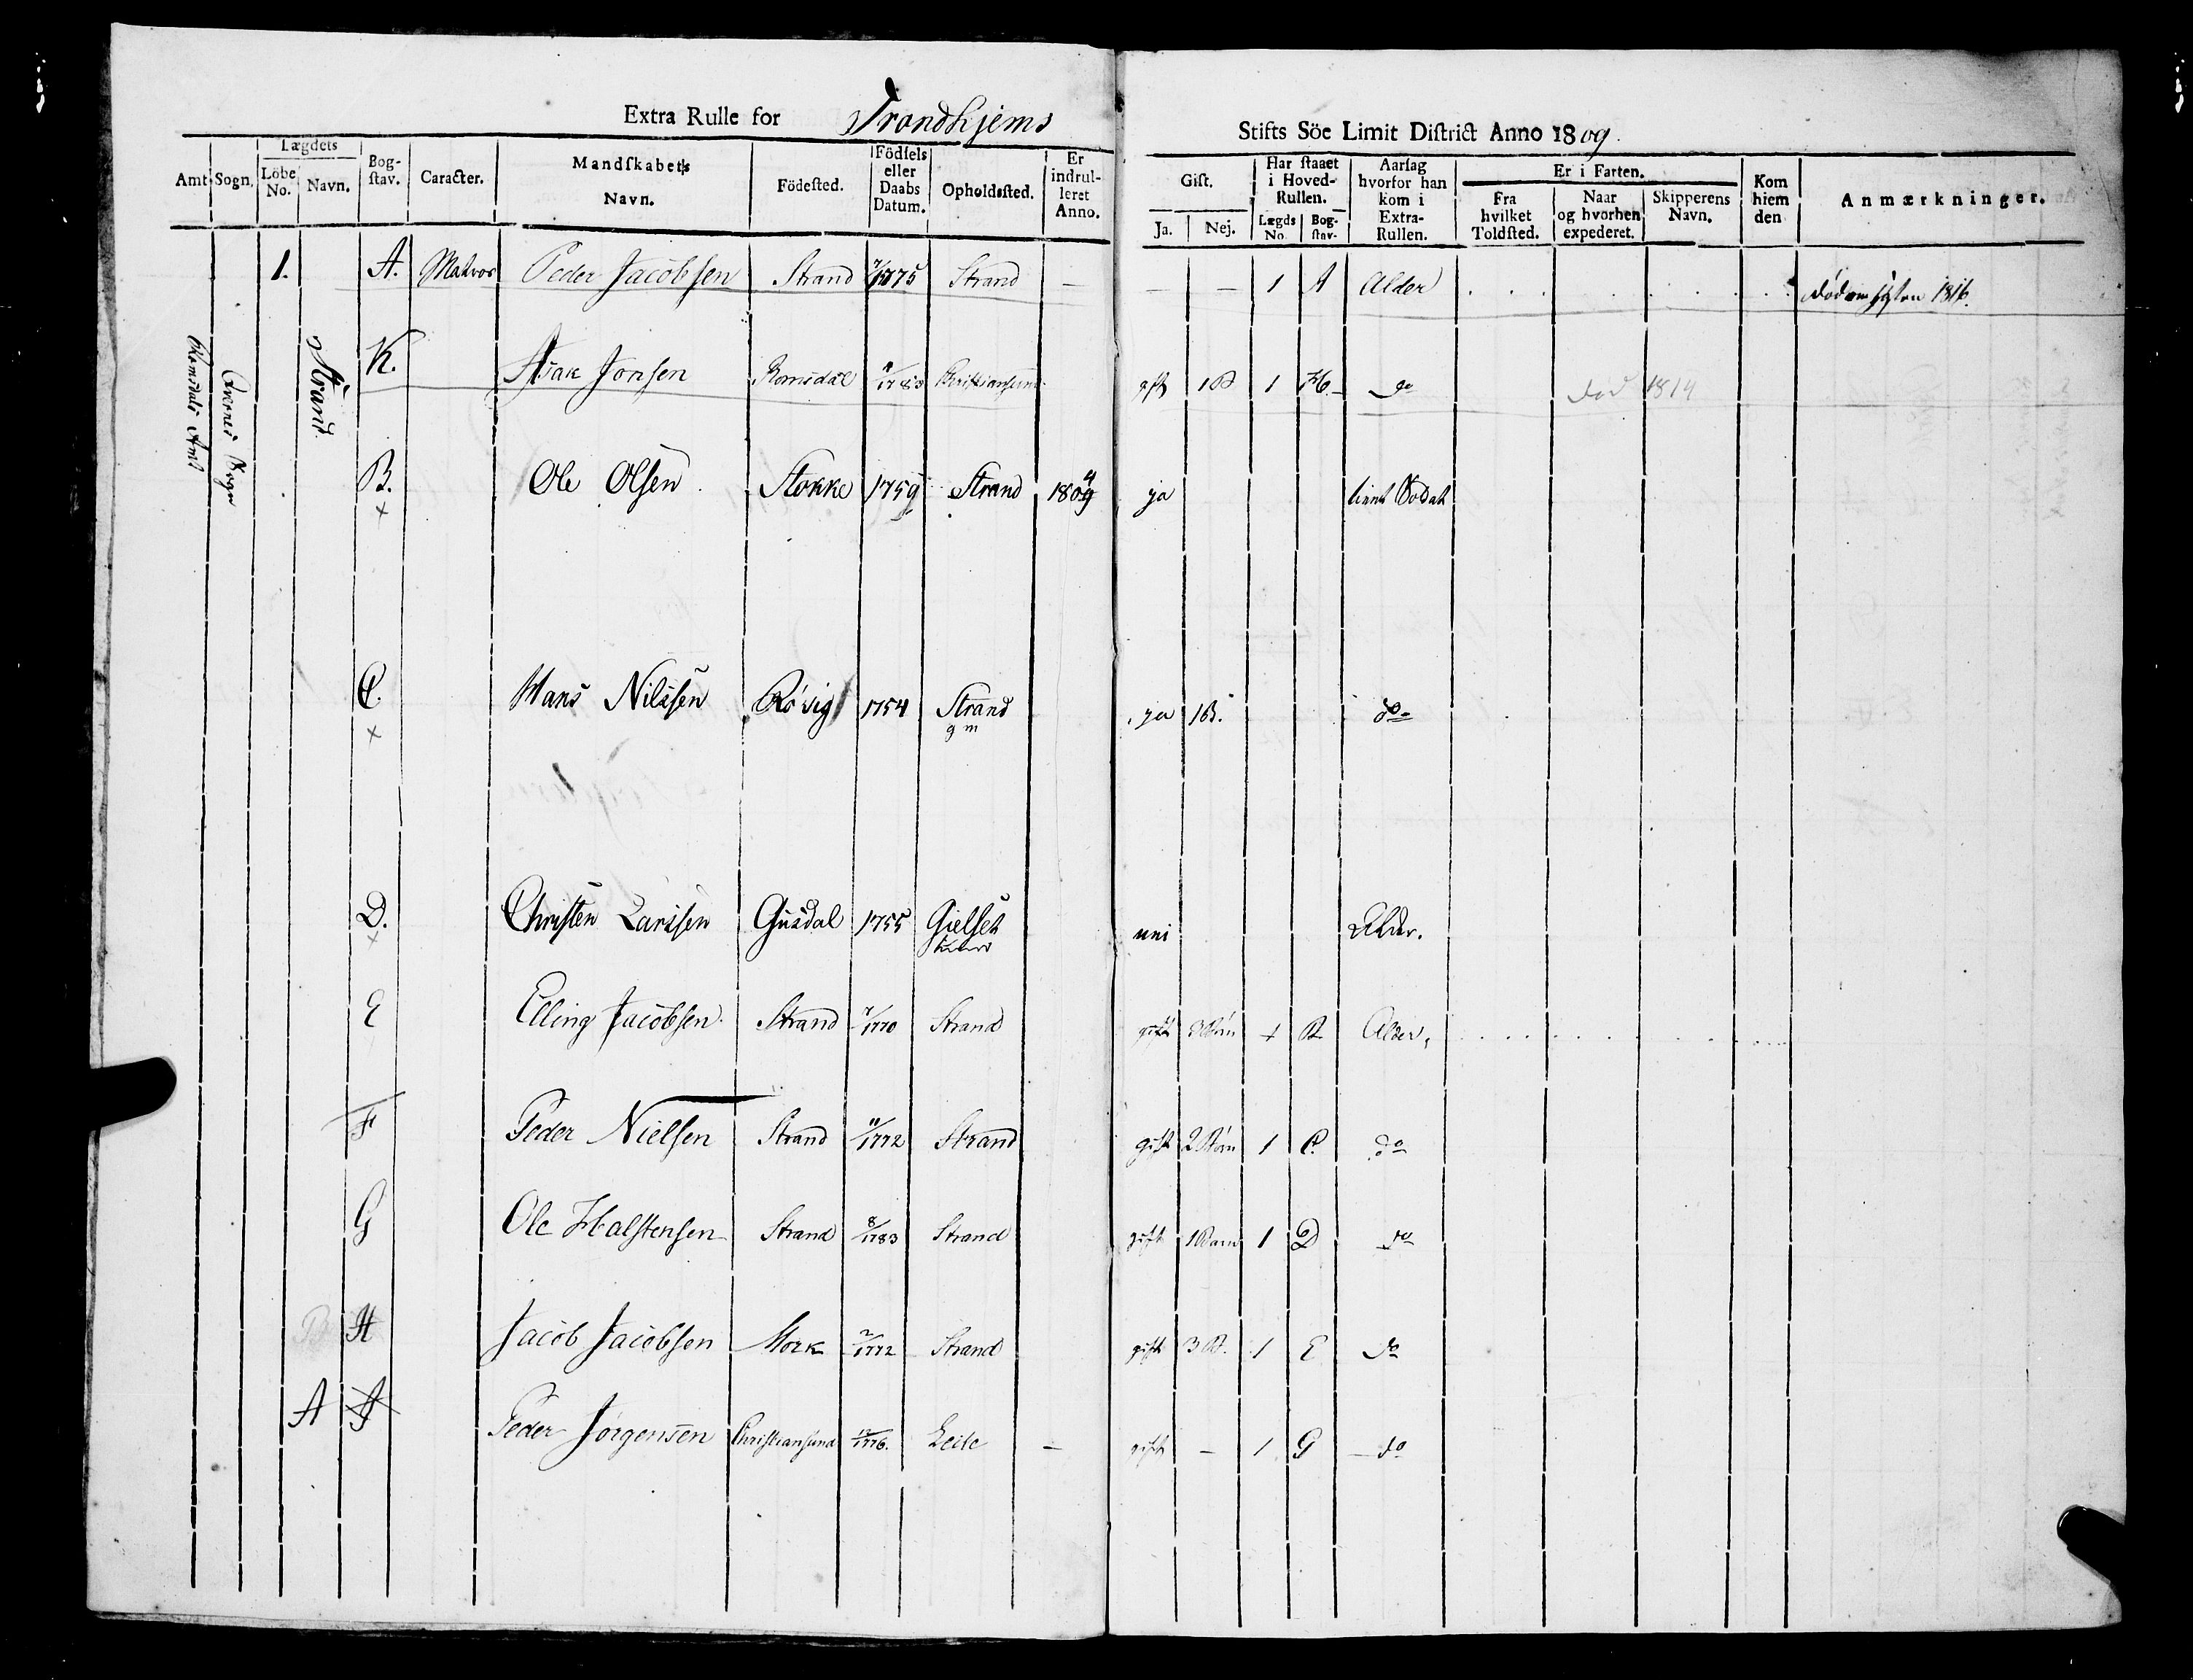 Extra Rulle for Trondhjems Stifts Söe Limit District Anno 1809.
Amt. Sogn. Lægdets Löbe No. Navn. Bogstav. Caracter. Mandskabets Navn. Födested. Födsels eller Daabs Datum. Opholdssted. Er indrulleret Anno. Gift. Ja. Nej. Har staaet i Hoved-Rullen. Lægds No. Bogstav. Aarsag hvorfor han kom i Extra-Rullen. Er i Farten. Fra hvilket Toldsted. Naar og hvorhen expederet. Skipperens Navn. Kom hiem den Anmærkninger.
Romsdals Amt
Qvernes Sogn
Strand
1. A. Matros Peder Jacobsen Strand 7/1775 Strand — — — 1 A Alder 1816.
K. Isak Jonsen Romsdal Christiansund gift 1 B 1 H. do død 1814
B. Ole Olsen Stokke 1759 Strand 1809 ja Soldat
x
C. Hans Nilssen Røsvig 1754 Strand ja 1 B. do
x gm
D. Christen Larssen Gusdal 1755 Gielset nei Alder.
x Strand
E Elling Jacobsen Strand 7/1770 Strand gift 3 Børn 1 B Alder,
F Peder Nielsen Strand 11/1772 Strand gift 2 Børn 1 C. do
G Ole Halstensen Strand 8/1783 Strand gift 1 Barn 1 D do
H Jacob Jacobsen Mork 2/1772 Strand gift 3 B. 1 E do
A I Peder Jörgensen Christiansund 12/1776. Leite — gift — 1 G do